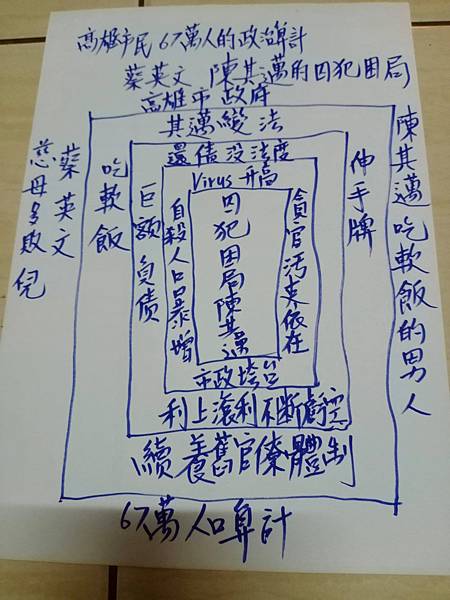 高雄市民67萬人的政治算計
蔡英文 陳其邁的囚犯困局
高雄市政府
其邁變法
還債沒法度
Virus升高
囚犯困局陳其邁
貪官污吏依在
自殺人口暴增
市政垮台
巨額負債
利上滾利不斷虧空
吃軟飯
伸手牌
續養舊官僚體制
蔡英文
慈母多敗兒
陳其邁吃軟飯的男人
67萬人口算計